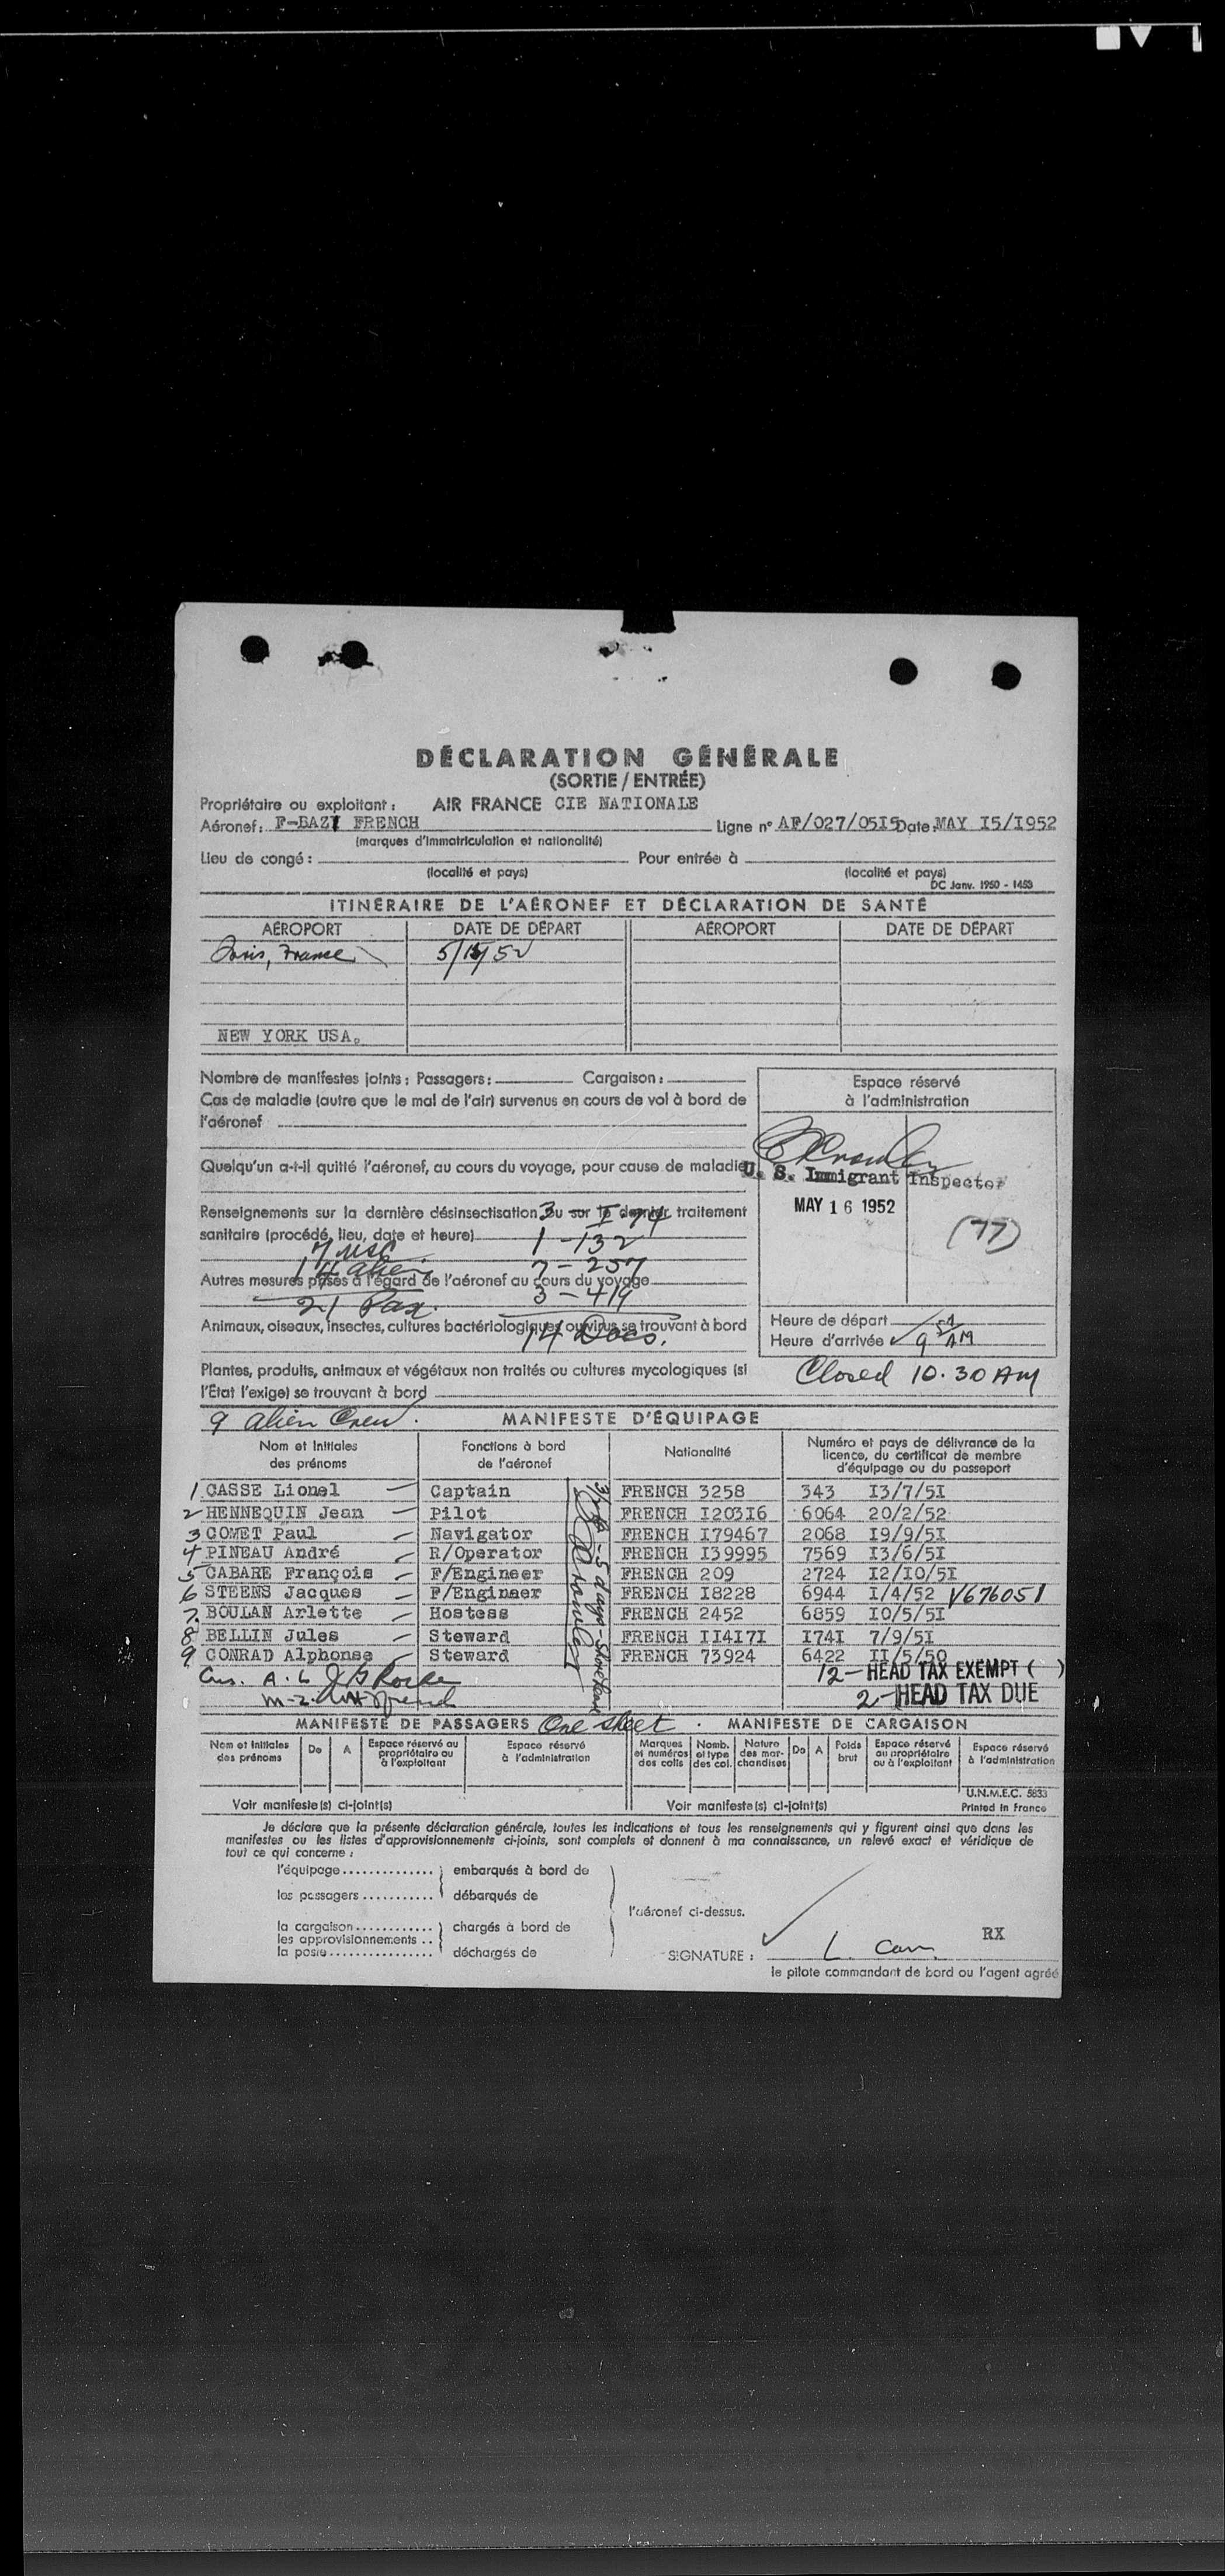 DÉCLARATION GÉNÉRALE
(SORTIE / ENTRÉE)
Propriétaire ou exploitant : AIR FRANCE CIE NATIONALE
Aéronef : F-BAZI FRENCH Ligne n° AF/027/0515 Date : MAY I5/I952
(marques d'immatriculation et nationalité)
Lieu de congé : Pour entrée à
(localité et pays) (localité et pays)
DC Janv. 1950 - 1453
ITINÉRAIRE DE L'AÉRONEF ET DÉCLARATION DE SANTÉ
AÉROPORT DATE DE DÉPART AÉROPORT DATE DE DÉPART
Paris, France 5/15/52
NEW YORK USA.
Nombre de manifestes joints : Passagers : Cargaison :
Cas de maladie (autre que le mal de l'air) survenus en cours de vol à bord de
l'aéronef
Quelqu'un a-t-il quitté l'aéronef, au cours du voyage, pour cause de maladie
Renseignements sur la dernière désinsectisation ou sur le dernier traitement
sanitaire (procédé, lieu, date et heure)
3 - I 74
1 - 132
7 USC
14 alien
7 - 257
Autres mesures prises à l'égard de l'aéronef au cours du voyage
3 - 419
21 Pax.
Animaux, oiseaux, insectes, cultures bactériologiques ou virus se trouvant à bord
14 Docs.
Plantes, produits, animaux et végétaux non traités ou cultures mycologiques (si
l'État l'exige) se trouvant à bord
Espace réservé
à l'administration
U. S. Immigrant Inspector
MAY 16 1952
(77)
Heure de départ
Heure d'arrivée 9 51 AM
Closed 10.30 AM
9 alien Crew. MANIFESTE D'ÉQUIPAGE
Nom et Initiales des prénoms Fonctions à bord de l'aéronef Nationalité Numéro et pays de délivrance de la licence, du certificat de membre d'équipage ou du passeport
1 CASSE Lionel — Captain FRENCH 3258 343 I3/7/5I
2 HENNEQUIN Jean — Pilot FRENCH I20316 6064 20/2/52
3 COMET Paul — Navigator FRENCH I79467 2068 I9/9/5I
4 PINEAU André — R/Operator FRENCH I39995 7569 I3/6/5I
5 CABARE François — F/Engineer FRENCH 209 2724 I2/IO/5I
6 STEENS Jacques — F/Engineer FRENCH I8228 6944 I/4/52 V676051
7. BOULAN Arlette — Hostess FRENCH 2452 6859 IO/5/5I
8 BELLIN Jules — Steward FRENCH II4I7I I74I 7/9/5I
9 CONRAD Alphonse — Steward FRENCH 73924 6422 II/5/50
12 - HEAD TAX EXEMPT ( )
2 - HEAD TAX DUE
MANIFESTE DE PASSAGERS One sheet. MANIFESTE DE CARGAISON
Nom et Initiales des prénoms De A Espace réservé au propriétaire ou à l'exploitant Espace réservé à l'administration Marques et numéros des colis Nomb. et type des col. Nature des marchandises De A Poids brut Espace réservé au propriétaire ou à l'exploitant Espace réservé à l'administration
U.N.M.E.C. 5833
Voir manifeste(s) ci-joint(s) Voir manifeste(s) ci-joint(s) Printed in France
Je déclare que la présente déclaration générale, toutes les indications et tous les renseignements qui y figurent ainsi que dans les
manifestes ou les listes d'approvisionnements ci-joints, sont complets et donnent à ma connaissance, un relevé exact et véridique de
tout ce qui concerne :
l'équipage.............. embarqués à bord de
les passagers........... débarqués de
l'aéronef ci-dessus.
la cargaison............ chargés à bord de
les approvisionnements ..
la poste................ déchargés de
RX
SIGNATURE :
le pilote commandant de bord ou l'agent agréé